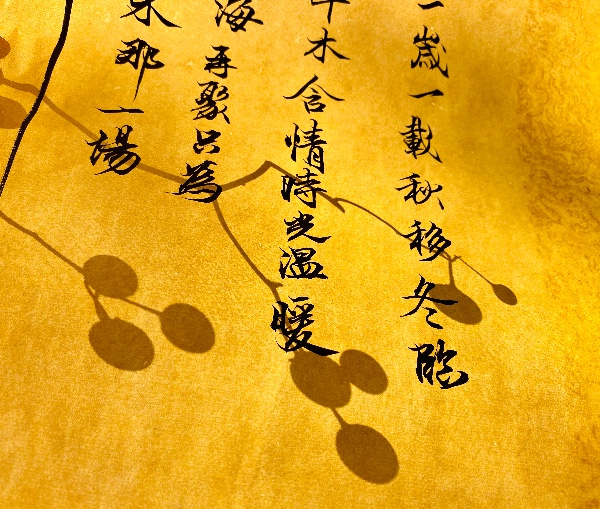 一歲一載秋移冬臨
木含情時光溫暖
海再聚只為
那一場